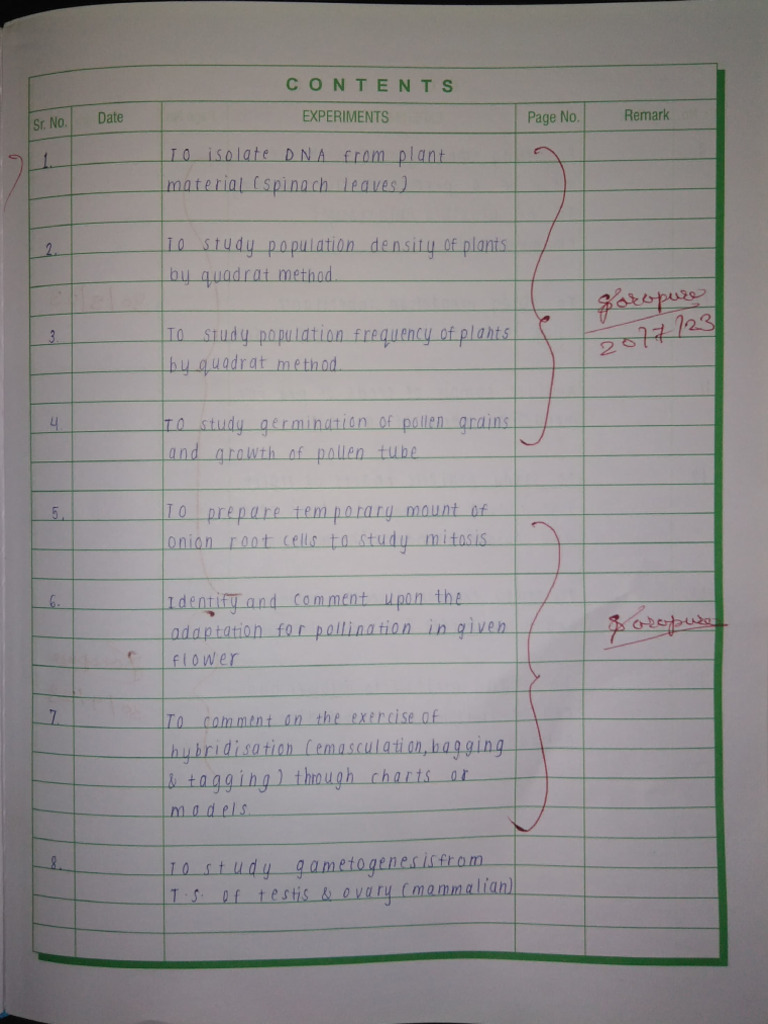 CONTENTS
Sr. No. Date EXPERIMENTS Page No. Remark
1. TO isolate DNA from plant
material (spinach leaves)
2. TO study population density of plants
by quadrat method.
3. TO study population frequency of plants
by quadrat method.
20/7/23
4. TO study germination of pollen grains
and growth of pollen tube
5. TO prepare temporary mount of
onion root cells to study mitosis
6. Identify and comment upon the
adaptation for pollination in given
flower
7. TO comment on the exercise of
hybridisation (emasculation, bagging
& tagging) through charts or
models.
8. TO study gametogenesis from
T.S. of testis & ovary (mammalian)